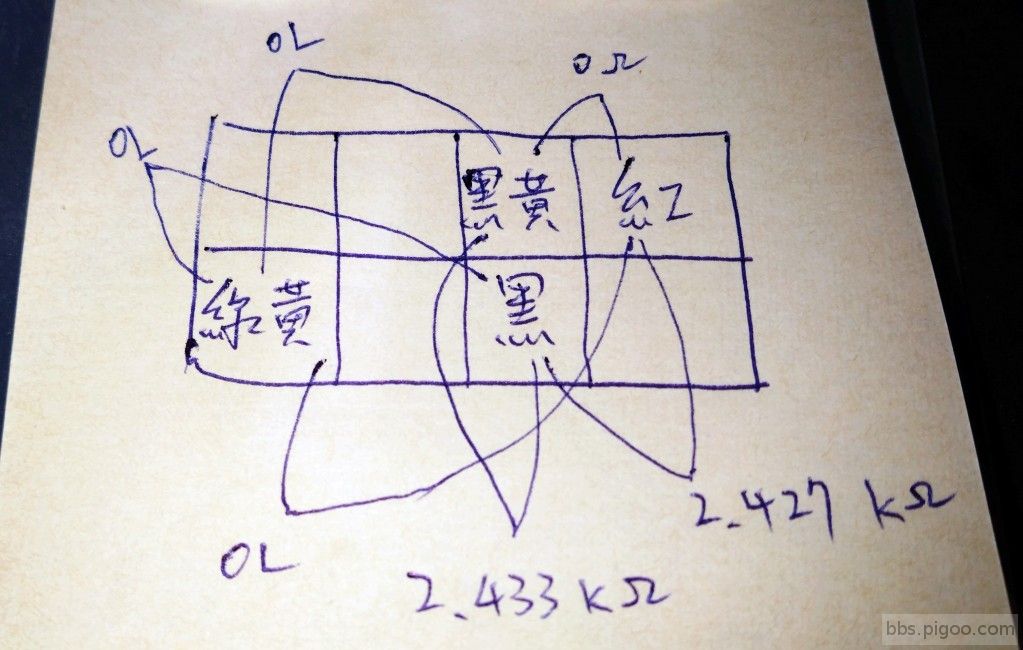 OL
0Ω
OL
黑黃
紅
綠黃
黑
2.427 kΩ
OL
2.433 kΩ
bbs.pigoo.com